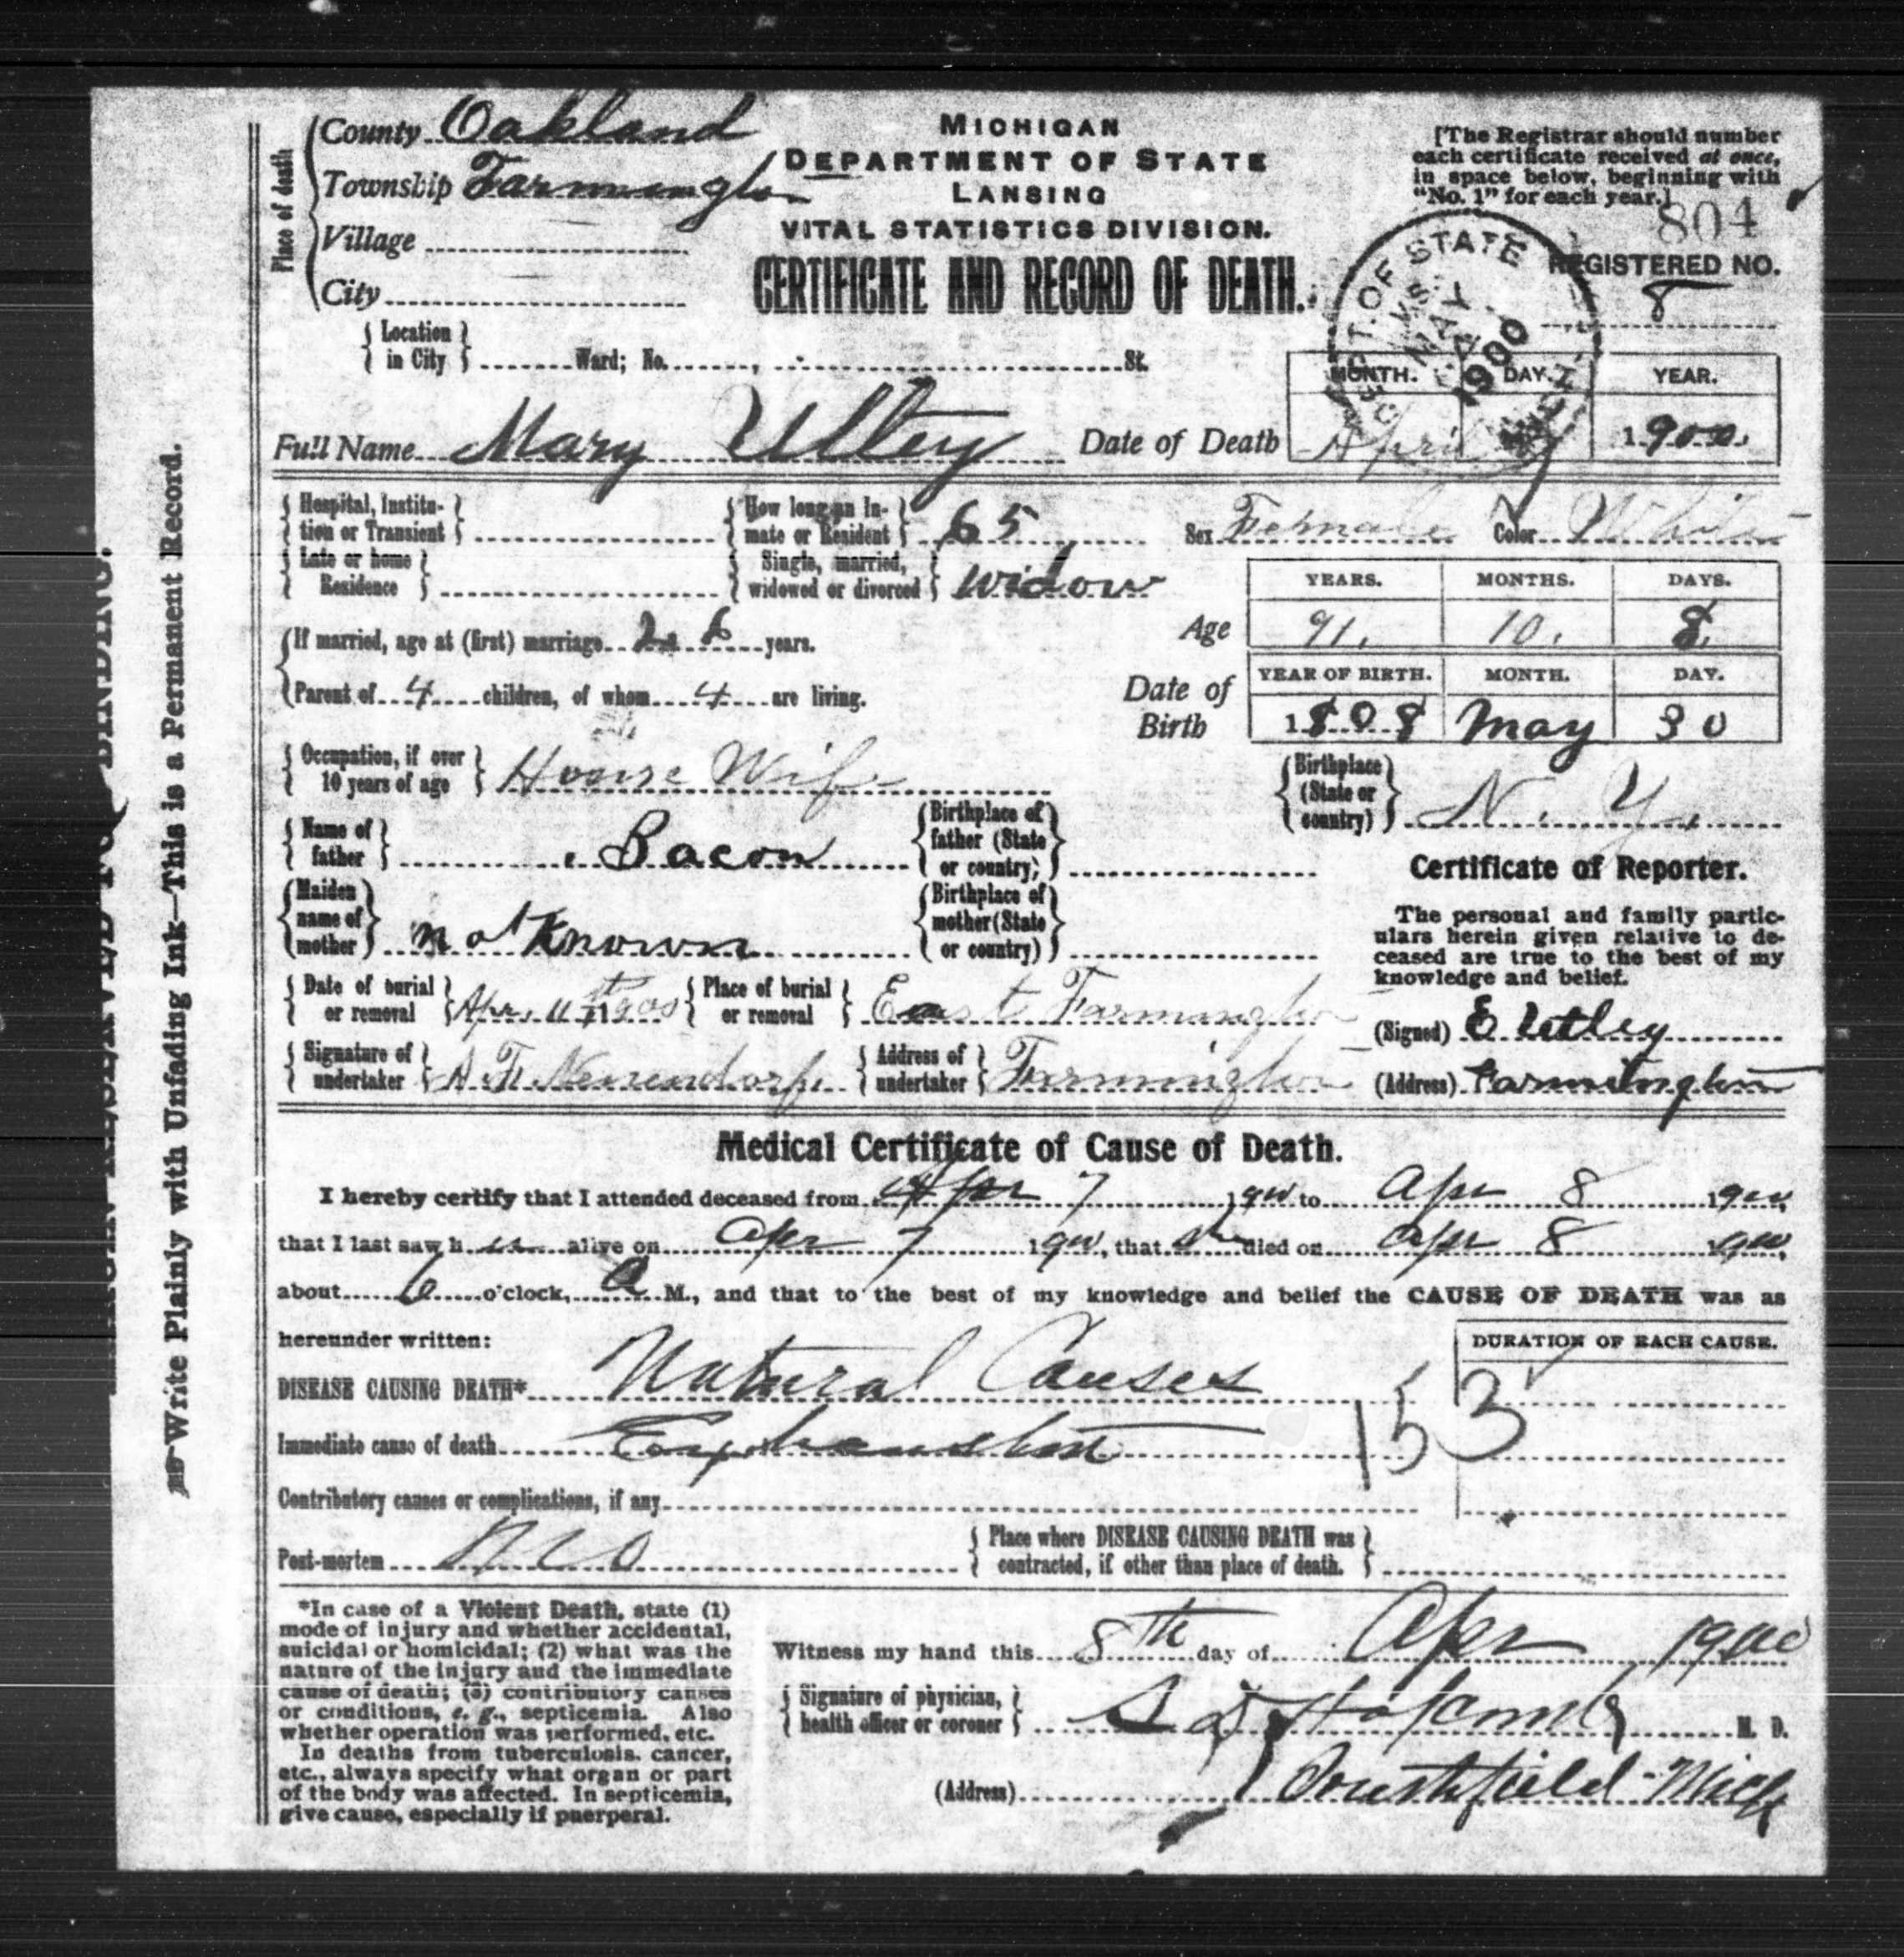 Place of death
County Oakland
Township Farmington
Village
City
MICHIGAN
DEPARTMENT OF STATE
LANSING
VITAL STATISTICS DIVISION.
CERTIFICATE AND RECORD OF DEATH.
[The Registrar should number
each certificate received at once,
in space below, beginning with
"No. 1" for each year.]
804
REGISTERED NO.
8
DEPT. OF STATE
MAY
1900
MICH.
Location in City Ward; No. , St.
Full Name Mary Utley Date of Death
MONTH. DAY. YEAR.
April 1900.
Hospital, Institution or Transient How long an Inmate or Resident 65 Sex Female Color White
Late or home Residence Single, married, widowed or divorced Widow
Age YEARS. MONTHS. DAYS.
91. 10. 8.
If married, age at (first) marriage 26 years.
Parent of 4 children, of whom 4 are living.
Date of Birth YEAR OF BIRTH. MONTH. DAY.
1808 May 30
Occupation, if over 10 years of age House Wife Birthplace (State or country) N. Y.
Name of father Bacon Birthplace of father (State or country)
Maiden name of mother not Known Birthplace of mother (State or country)
Certificate of Reporter.
The personal and family partic-
ulars herein given relative to de-
ceased are true to the best of my
knowledge and belief.
(Signed) E Utley
(Address) Farmington
Date of burial or removal Apr. 11th 1900 Place of burial or removal East Farmington
Signature of undertaker Address of undertaker Farmington
Medical Certificate of Cause of Death.
I hereby certify that I attended deceased from Apr 7 1900 to Apr 8 1900,
that I last saw her alive on Apr 7 1900, that she died on Apr 8 1900,
about 6 o'clock, A M., and that to the best of my knowledge and belief the CAUSE OF DEATH was as
hereunder written:
DURATION OF EACH CAUSE.
DISEASE CAUSING DEATH* Natural Causes
153
Immediate cause of death Exhaustion
Contributory causes or complications, if any
Post-mortem No Place where DISEASE CAUSING DEATH was contracted, if other than place of death.
*In case of a Violent Death, state (1)
mode of injury and whether accidental,
suicidal or homicidal; (2) what was the
nature of the injury and the immediate
cause of death; (3) contributory causes
or conditions, e. g., septicemia. Also
whether operation was performed, etc.
In deaths from tuberculosis, cancer,
etc., always specify what organ or part
of the body was affected. In septicemia,
give cause, especially if puerperal.
Witness my hand this 8th day of Apr 1900
Signature of physician, health officer or coroner M. D.
(Address) Southfield Mich
Write Plainly with Unfading Ink—This is a Permanent Record.